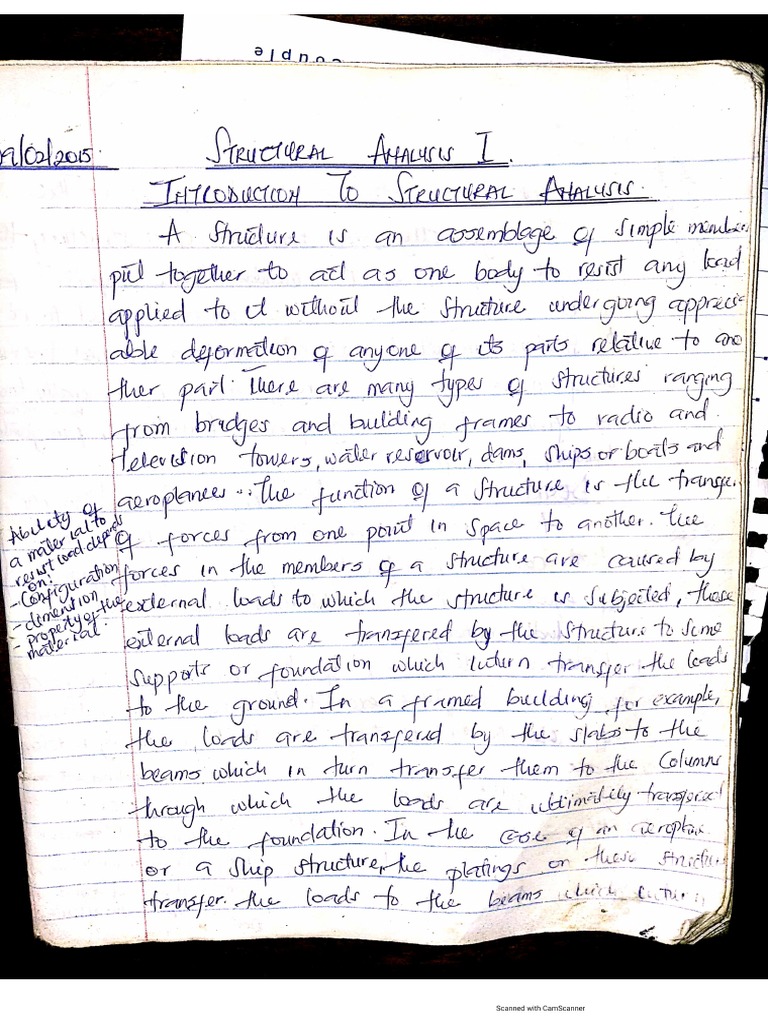 couple
9/02/2015
STRUCTURAL ANALYSIS I.
INTRODUCTION TO STRUCTURAL ANALYSIS.
A structure is an assemblage of simple members
put together to act as one body to resist any load
applied to it without the structure undergoing appreci-
able deformation of anyone of its parts relative to ano
ther part. There are many types of structures ranging
from bridges and building frames to radio and
television towers, water reservour, dams, ships or boats and
aeroplanes... The function of a structure is the transfe
of forces from one point in space to another. The
forces in the members of a structure are caused by
external loads to which the structure is subjected, these
external loads are transfered by the structure to some
supports or foundation which inturn transfer the loads
to the ground. In a framed building, for example,
the loads are transfered by the slabs to the
beams which in turn transfer them to the columns
through which the loads are ultimately transfered
to the foundation. In the case of an aeroplane
or a ship structure, the platings on these structure
transfer the loads to the beams which inturn
Ability of
a material to
resist load depends
on:
- Configuration
- dimension
- property of the
material.
Scanned with CamScanner